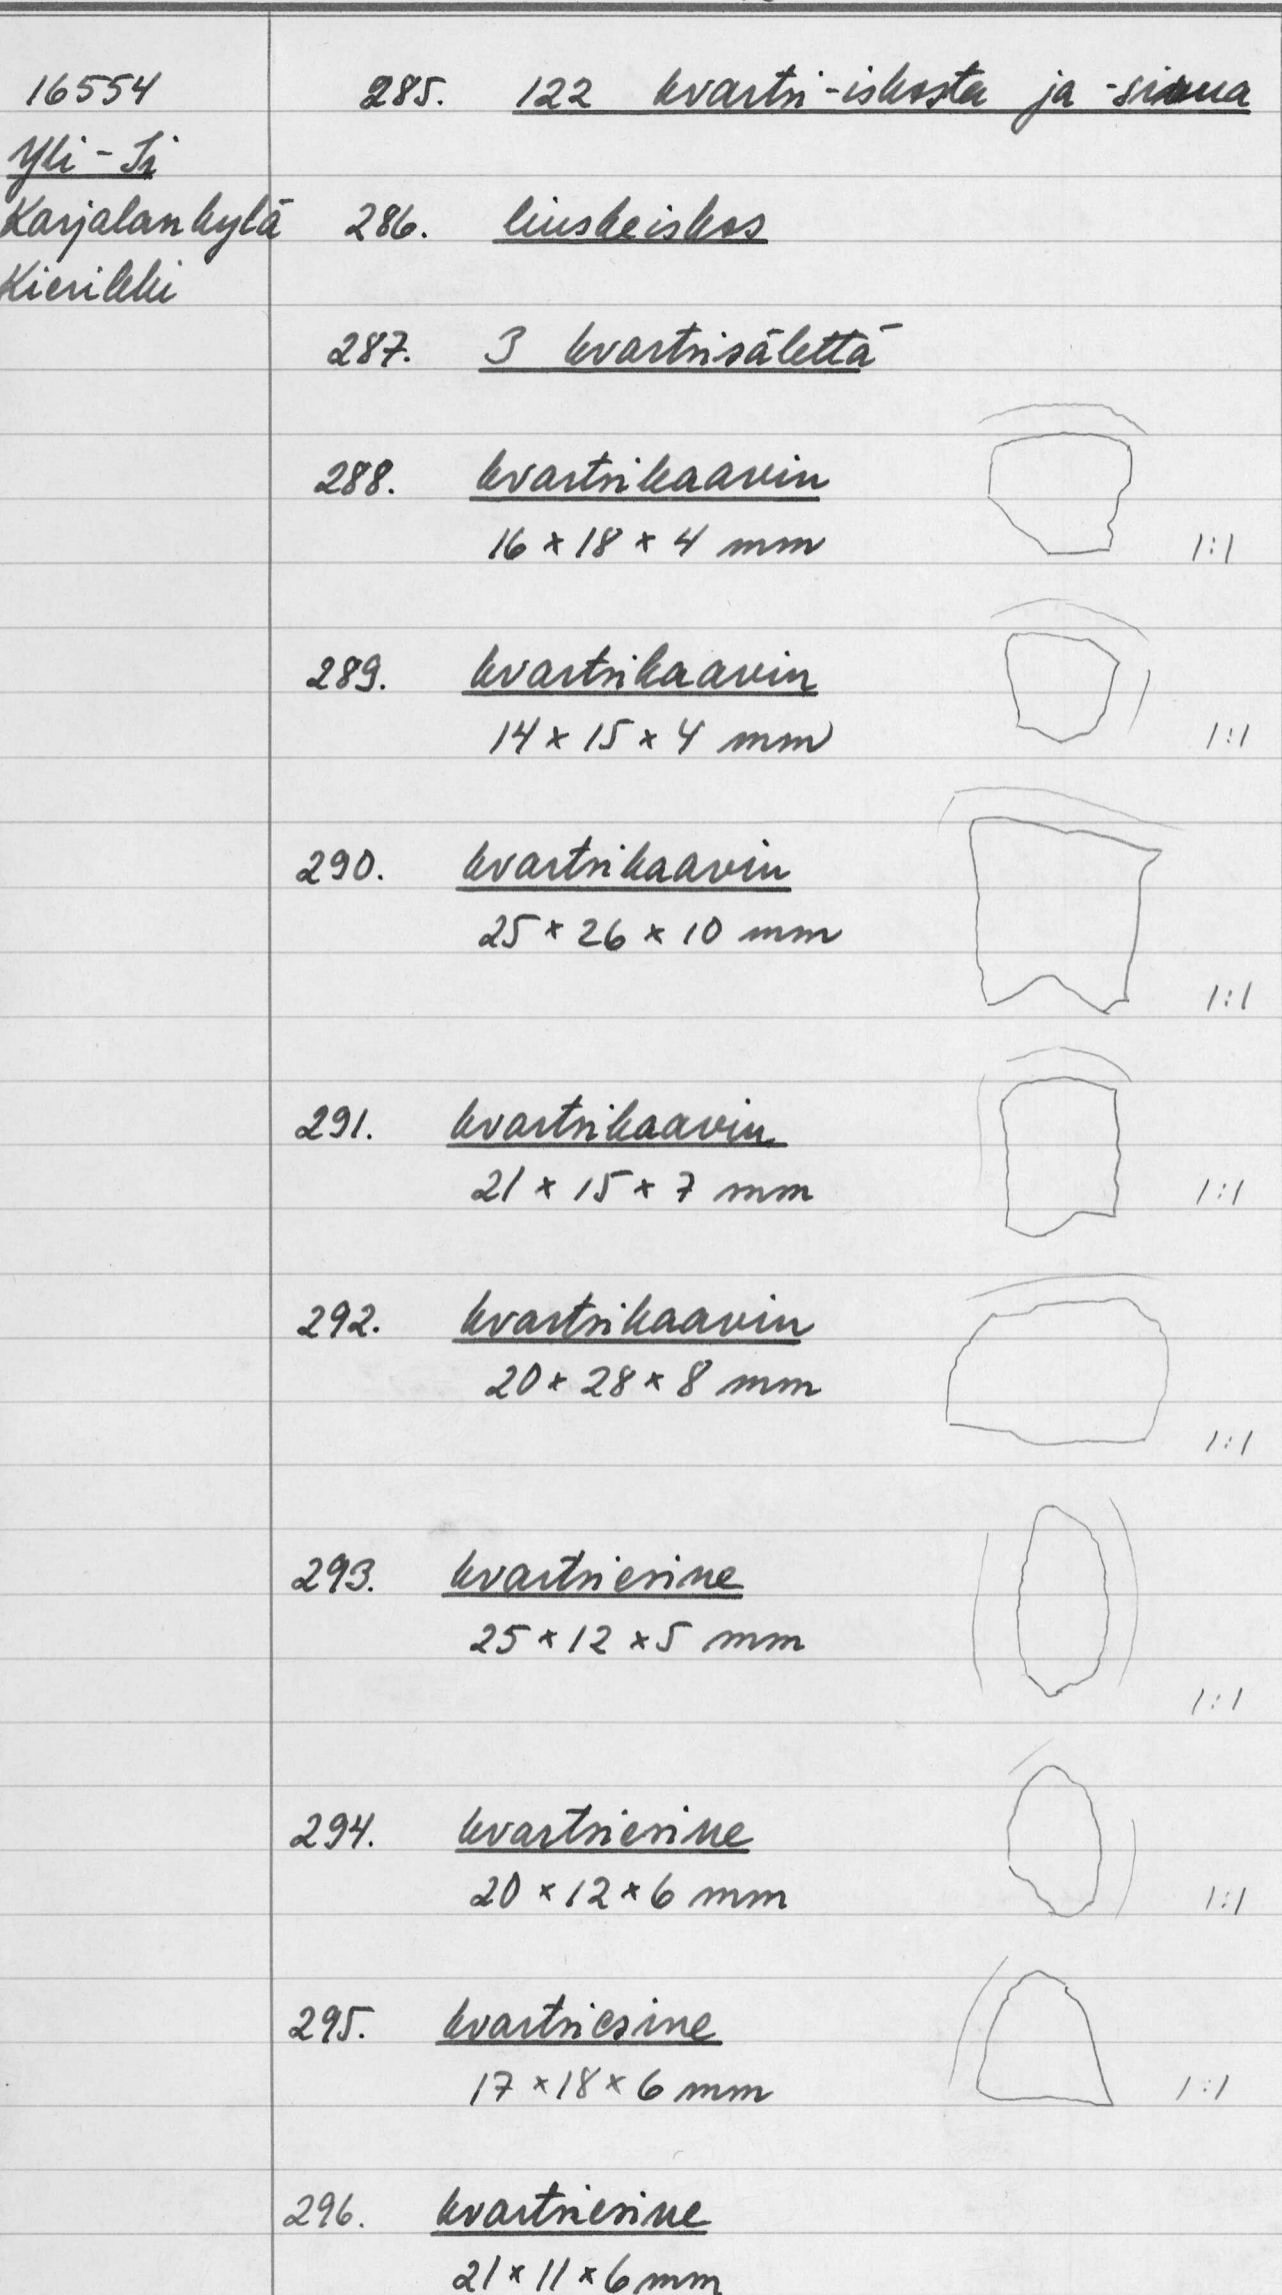 16554
Yli-Ii
Karjalankylä
Kierikki
285. 122 kvartsi-iskosta ja -sirua
286. liuskeiskos
287. 3 kvartsisälettä
288. kvartsikaavin
16 x 18 x 4 mm
1:1
289. kvartsikaavin
14 x 15 x 4 mm
1:1
290. kvartsikaavin
25 x 26 x 10 mm
1:1
291. kvartsikaavin
21 x 15 x 7 mm
1:1
292. kvartsikaavin
20 x 28 x 8 mm
1:1
293. kvartsiesine
25 x 12 x 5 mm
1:1
294. kvartsiesine
20 x 12 x 6 mm
1:1
295. kvartsiesine
17 x 18 x 6 mm
1:1
296. kvartsiesine
21 x 11 x 6 mm